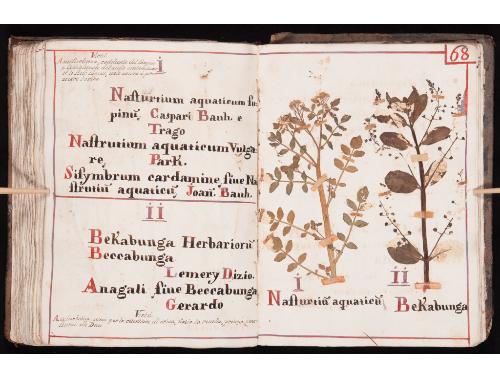 Virtù
i
Nasturtium aquaticum su-
pinũ, Caspari Bauh. e
Trago
Nastrutium aquaticum Vulga
re, Park.
Sisymbrum cardamine, siue Na
strutiũ aquaticũ, Joan. Bauh.
ii
Bekabunga Herbariorũ
Beccabunga
Lemery Dizio.
Anagali siue Beccabunga
Gerardo
Virtù
68
i
Nasturtiũ aquaticũ
ii
Bekabunga